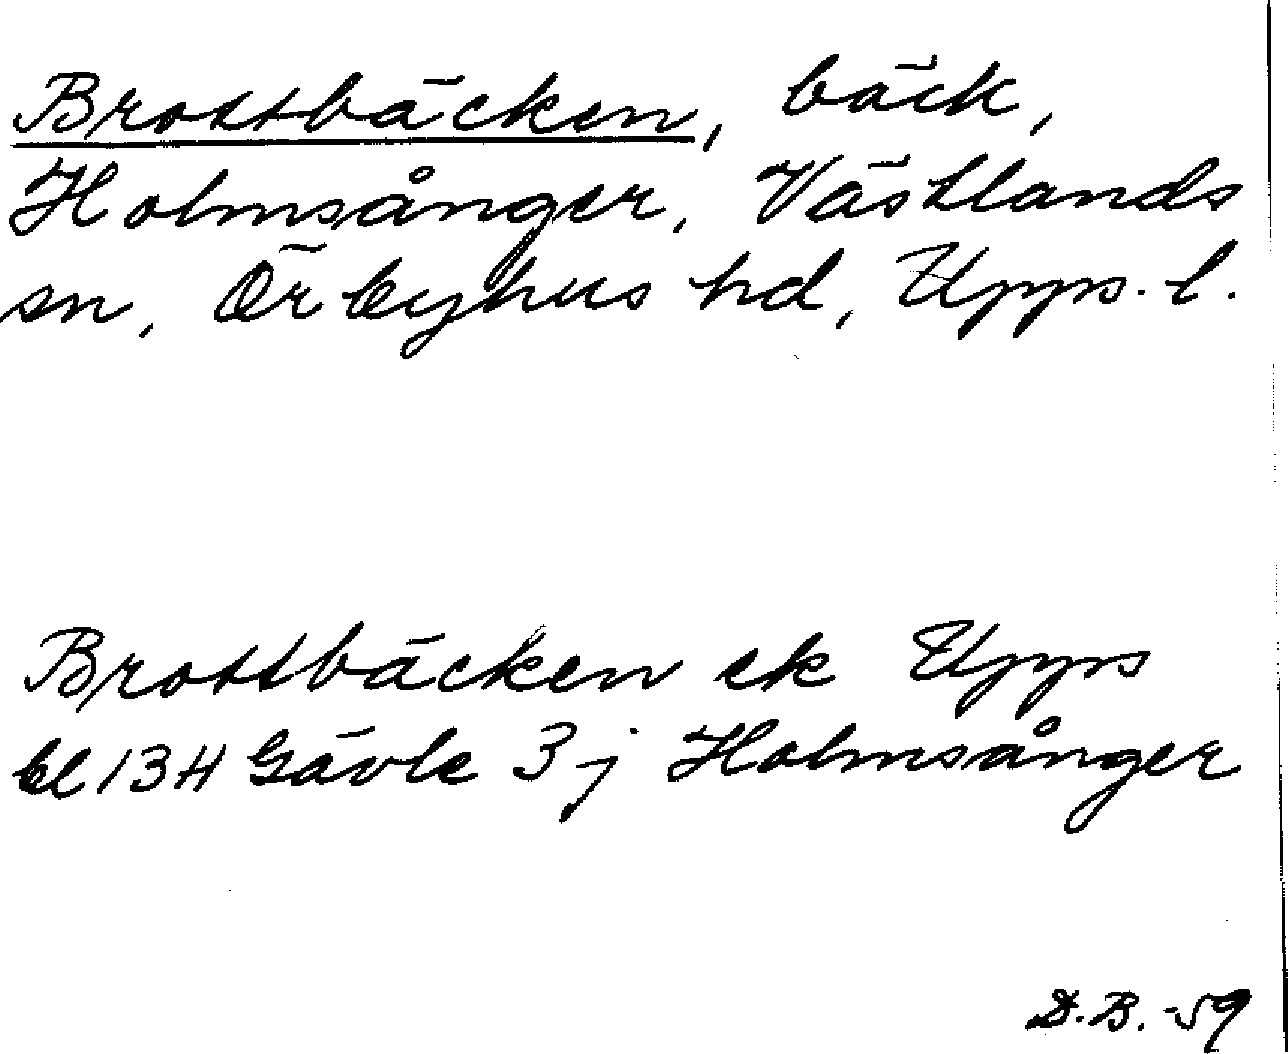 Brottbäcken, bäck,
Holmsånger, Västlands
sn, Örbyhus hd, Upps. l.
Brottbäcken ek Upps
bl 13H Gävle 3j Holmsånger
D.B. -59